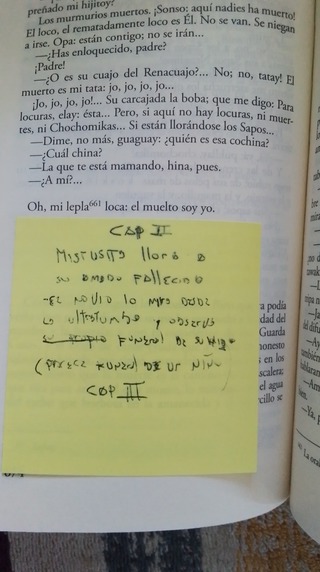 preñado mi hijitoy?
Los murmurios muertos. ¡Sonso: aquí nadies ha muerto!
El loco, el rematadamente loco es ÉL. No se van. Se niegan
a irse. Opa: están contigo; no se irán...
—¿Has enloquecido, padre?
¡Padre!
—¿O es su cuajo del Renacuajo?... No; no, tatay! El
muerto es mi tata: jo, jo, jo, jo...
¡Jo, jo, jo, jo!... Su carcajada la boba; que me digo: Para
locuras, elay: ésta... Pero, si aquí no hay locuras, ni muer-
tes, ni Chochomikas... Si están llorándose los Sapos...
—Dime, no más, guaguay: ¿quién es esa cochina?
—¿Cuál china?
—La que te está mamando, hina, pues.
—¿A mí?...
Oh, mi lepla⁶⁶¹ loca: el muelto soy yo.
CAP II
llora a
su amado fallecido
-el novio lo mira desde
la ultratumba y observa
su propio funeral de su hijo
(parece funeral de un niño
CAP III
va podía
dad del
Guarda
honesto
en los
scalera;
el agua
cillo se